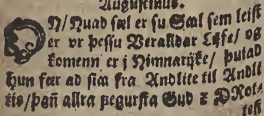 Augustinus.
ON/Huad sæl er su Sæl sem leist
er vr þessu Veralldar Lijfe/ og
komenn er j Himnarijke/ þuiad
hun fær ad sia fra Andlite til Andli
tis/þañ allra fegursta Gud & DRot-